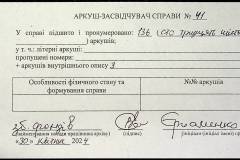 АРКУШ-ЗАСВІДЧУВАЧ СПРАВИ № 41
У справі підшито і пронумеровано: 136 (сто тридцять шість)
) аркушів,
у т.ч.: літерні аркуші:
пропущені номери:
+ аркушів внутрішнього опису 3
Особливості фізичного стану та формування справи
№№ аркушів
зб. фондів
(підпис)
«30» квітня 2024